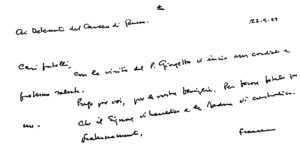 Ai Detenuti del Carcere di
Cari fratelli,
con la visita del P. vi invio un cordiale e
fraterno saluto.
Prego per voi, per le vostre famiglie. Per favore fatelo per
me. Che il Signore vi benedica e la Madonna vi custodisca.
Fraternamente,
Francesco